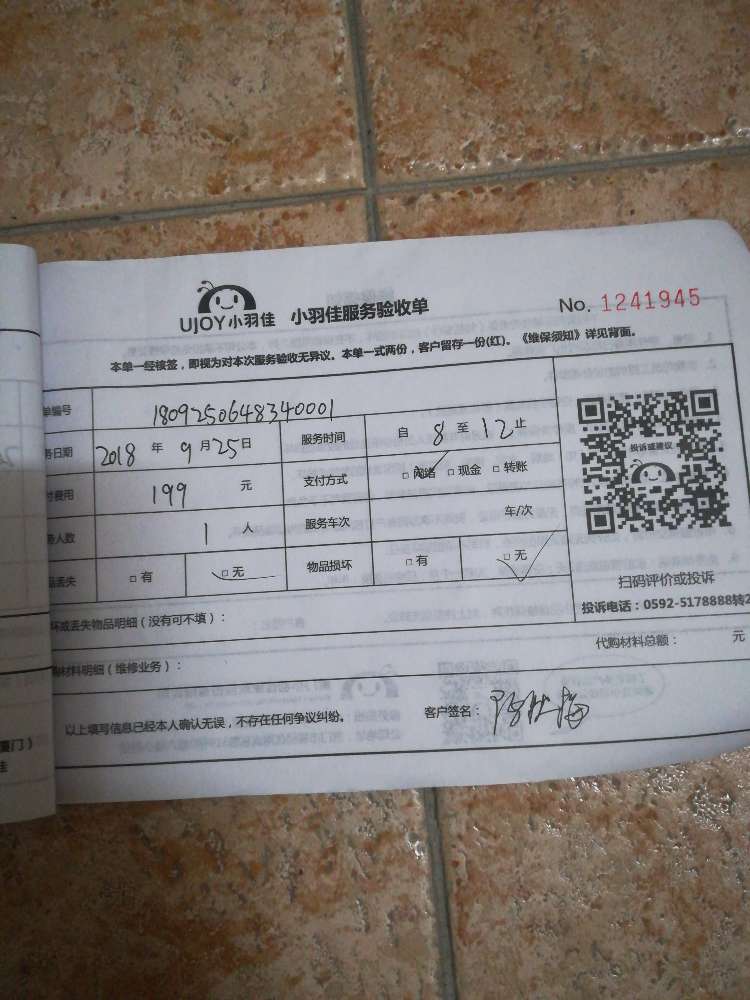 UJOY小羽佳 小羽佳服务验收单 No. 1241945
本单一经核签，即视为对本次服务验收无异议。本单一式两份，客户留存一份(红)。《维保须知》详见背面。
单编号 1809250648340001
务日期 2018 年 9 月 25 日 服务时间 自 8 至 12 止
付费用 199 元 支付方式 □网络 □现金 □转账
务人数 1 人 服务车次 车/次
品丢失 □有 □无 物品损坏 □有 □无
投诉或建议
扫码评价或投诉
投诉电话：0592-5178888转2
坏或丢失物品明细（没有可不填）：
购材料明细（维修业务）： 代购材料总额： 元
以上填写信息已经本人确认无误，不存在任何争议纠纷。 客户签名：
厦门）
佳